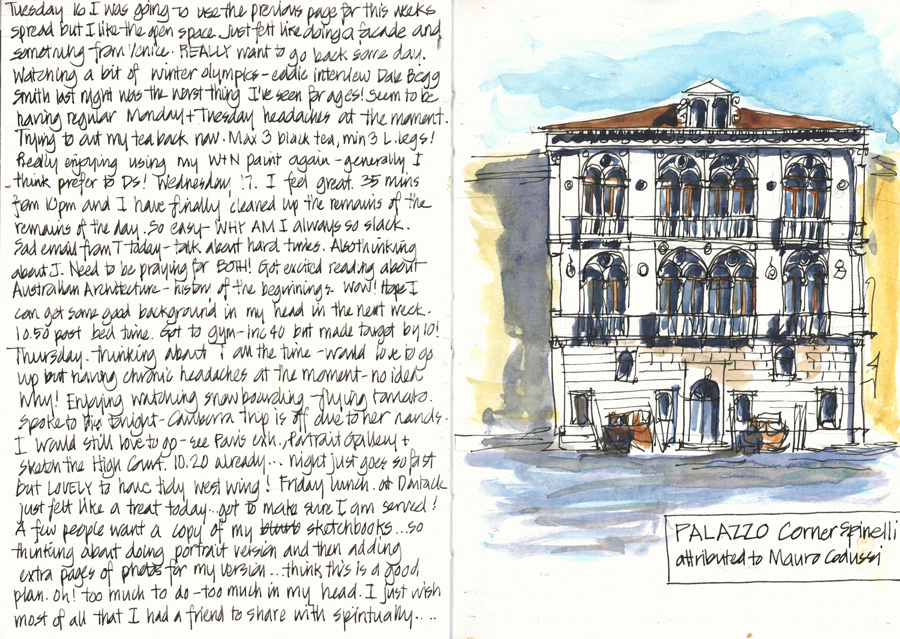 Tuesday 16 I was going to use the previous page for this weeks
spread but I like the open space. Just felt like doing a facade and
something from Venice. REALLY want to go back some day.
Watching a bit of winter olympics - eddie interview Dale Begg
Smith last night was the worst thing I've seen for ages! Seem to be
having regular Monday + Tuesday headaches at the moment.
Trying to cut my tea back now. Max 3 black tea, min 3 L. legs!
Really enjoying using my W+N paint again - generally I
think prefer to DS! Wednesday 17. I feel great. 35 mins
from 10pm and I have finally cleaned up the remains of the
remains of the day. So easy - WHY AM I always so slack.
Sad email from T today - talk about hard times. Also thinking
about J. Need to be praying for BOTH! Got excited reading about
Australian Architecture - history of the beginnings. WOW! Hope I
can get some good background in my head in the next week.
10.50 past bed time. Got to gym - inc 40 but made target by 10!
Thursday. thinking about T all the time - would love to go
up but having chronic headaches at the moment - no idea
why! Enjoying watching snowboarding - flying tomato.
Spoke to tonight - Canberra trip is off due to her hands.
I would still love to go - see Paris exh, Portrait Gallery +
sketch the High Court. 10.20 already... night just goes so fast
but LOVELY to have tidy west wing! Friday lunch. at
just felt like a treat today... got to make sure I am served!
A few people want a copy of my sketchbooks... so
thinking about doing portrait version and then adding
extra pages of photos for my version... think this is a good
plan. Oh! too much to do - too much in my head. I just wish
most of all that I had a friend to share with spiritually....
PALAZZO Corner Spinelli
attributed to Mauro Codussi